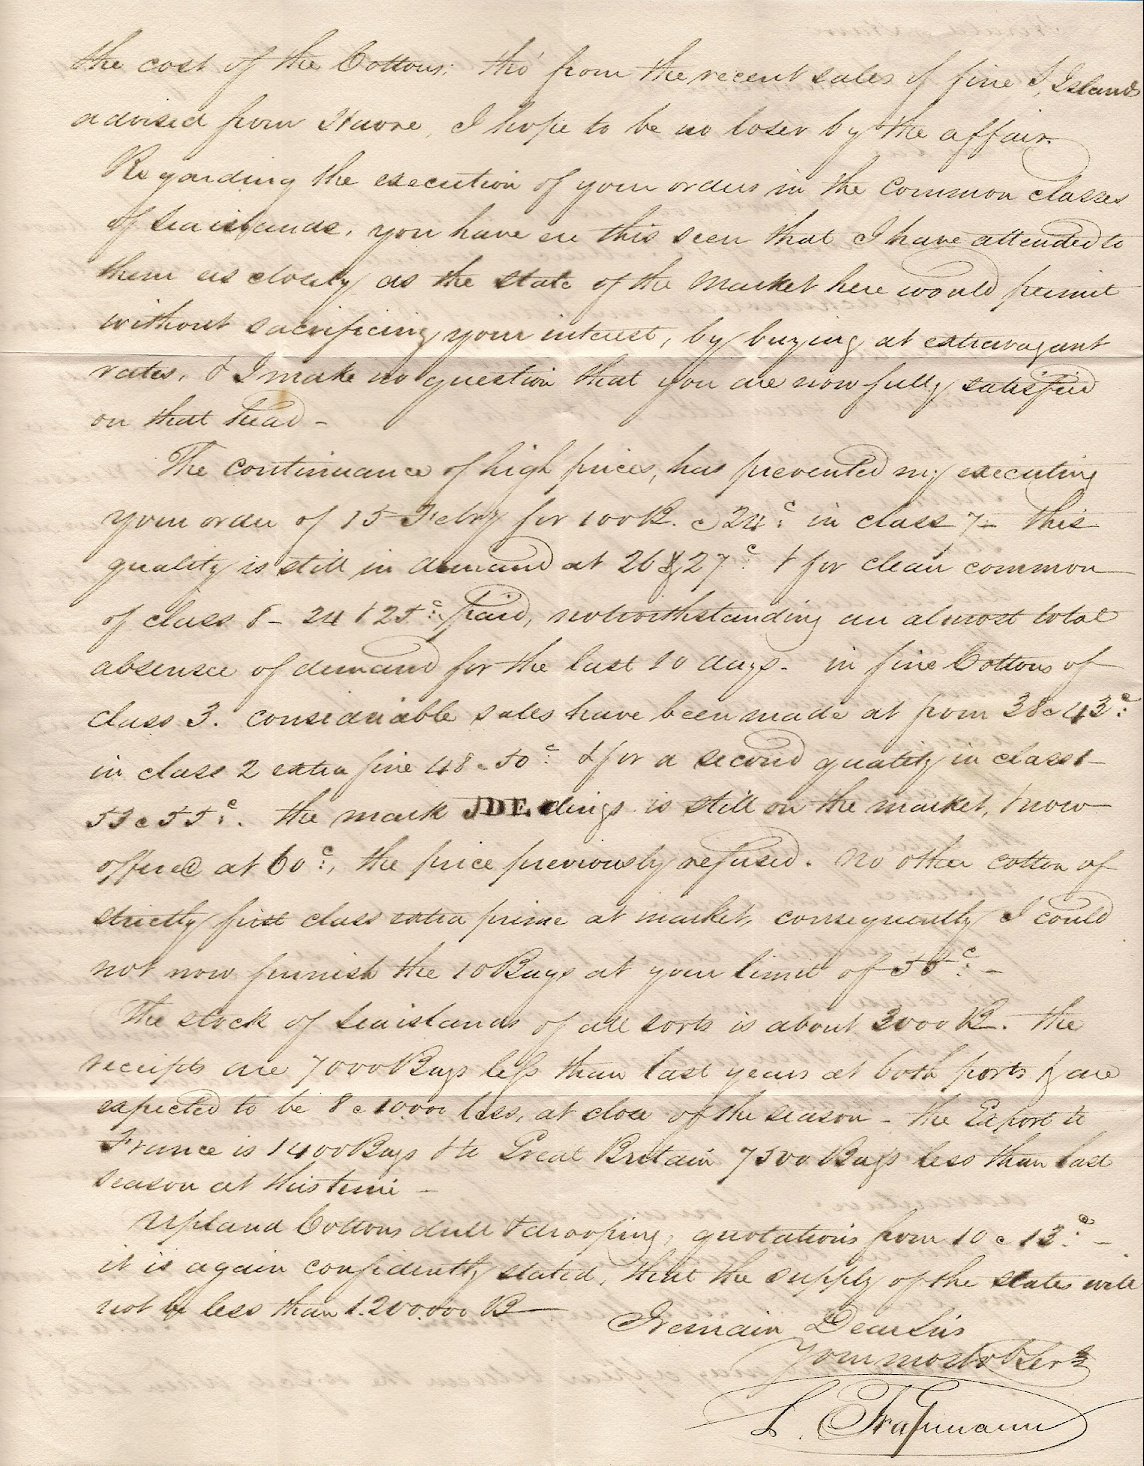 the cost of the Cottons: tho' from the recent sales of fine S. Islands
advised from Havre, I hope to be no loser by the affair.
Regarding the execution of your orders in the common classes
of Seaislands, you have ere this seen that I have attended to
them as closely as the state of the market here would permit
without sacrificing your interest, by buying at extravagant
rates, & I make no question that you are now fully satisfied
on that head -
The continuance of high prices, has prevented my executing
your order of 15 Febry for 100 B. a 24c: in class 7 - this
quality is still in demand at 26 & 27c: & for clean common
of class 8 - 24 & 25c: paid, notwithstanding an almost total
absence of demand for the last 10 days. in fine Cottons of
class 3. considerable sales have been made at from 38 a 43c:
in class 2 extra fine 48 a 50c: & for a second quality in class 1 -
53 a 55c:. the mark JDE. dings is still on the market, & now
offered at 60c:, the price previously refused. no other cotton of
strictly first class extra prime at market, consequently I could
not now furnish the 10 Bags at your limit of 55c: -
The stock of Seaislands of all sorts is about 3000 B. the
receipts are 7000 Bags less than last years at both ports & are
expected to be 8 a 10.000 less, at close of the season - the Export to
France is 1400 Bags & to Great Britain 7500 Bags less than last
season at this time -
Upland Cottons dull & drooping, quotations from 10 a 13c: -
it is again confidently stated, that the supply of the states will
not be less than 1.200.000 B -
I remain Dear Sir
Your most ob Servt
L. Trapmann